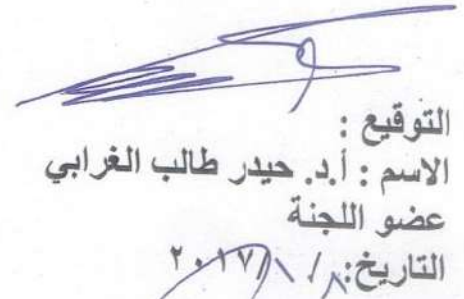 التوقيع :
الاسم : أ.د. حيدر طالب الغرابي
عضو اللجنة
التاريخ: ٨ / ١ / ٢٠١٧